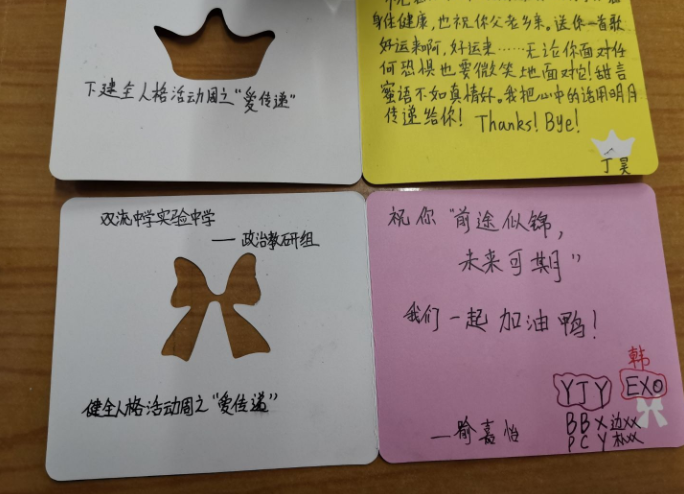 下建全人格活动周之“爱传递”
身体健康，也祝你父老乡亲。送你一首歌
好运来啊，好运来……无论你面对任
何恐惧也要微笑地面对它！甜言
蜜语不如真情好。我把心中的话用明月
传递给你！ Thanks! Bye!
丁昊
双流中学实验中学
——政治教研组
健全人格活动周之“爱传递”
祝你“前途似锦，
未来可期”
我们一起加油鸭！
韩
YJY EXO
BBX边xx
PCY朴xx
—喻嘉怡